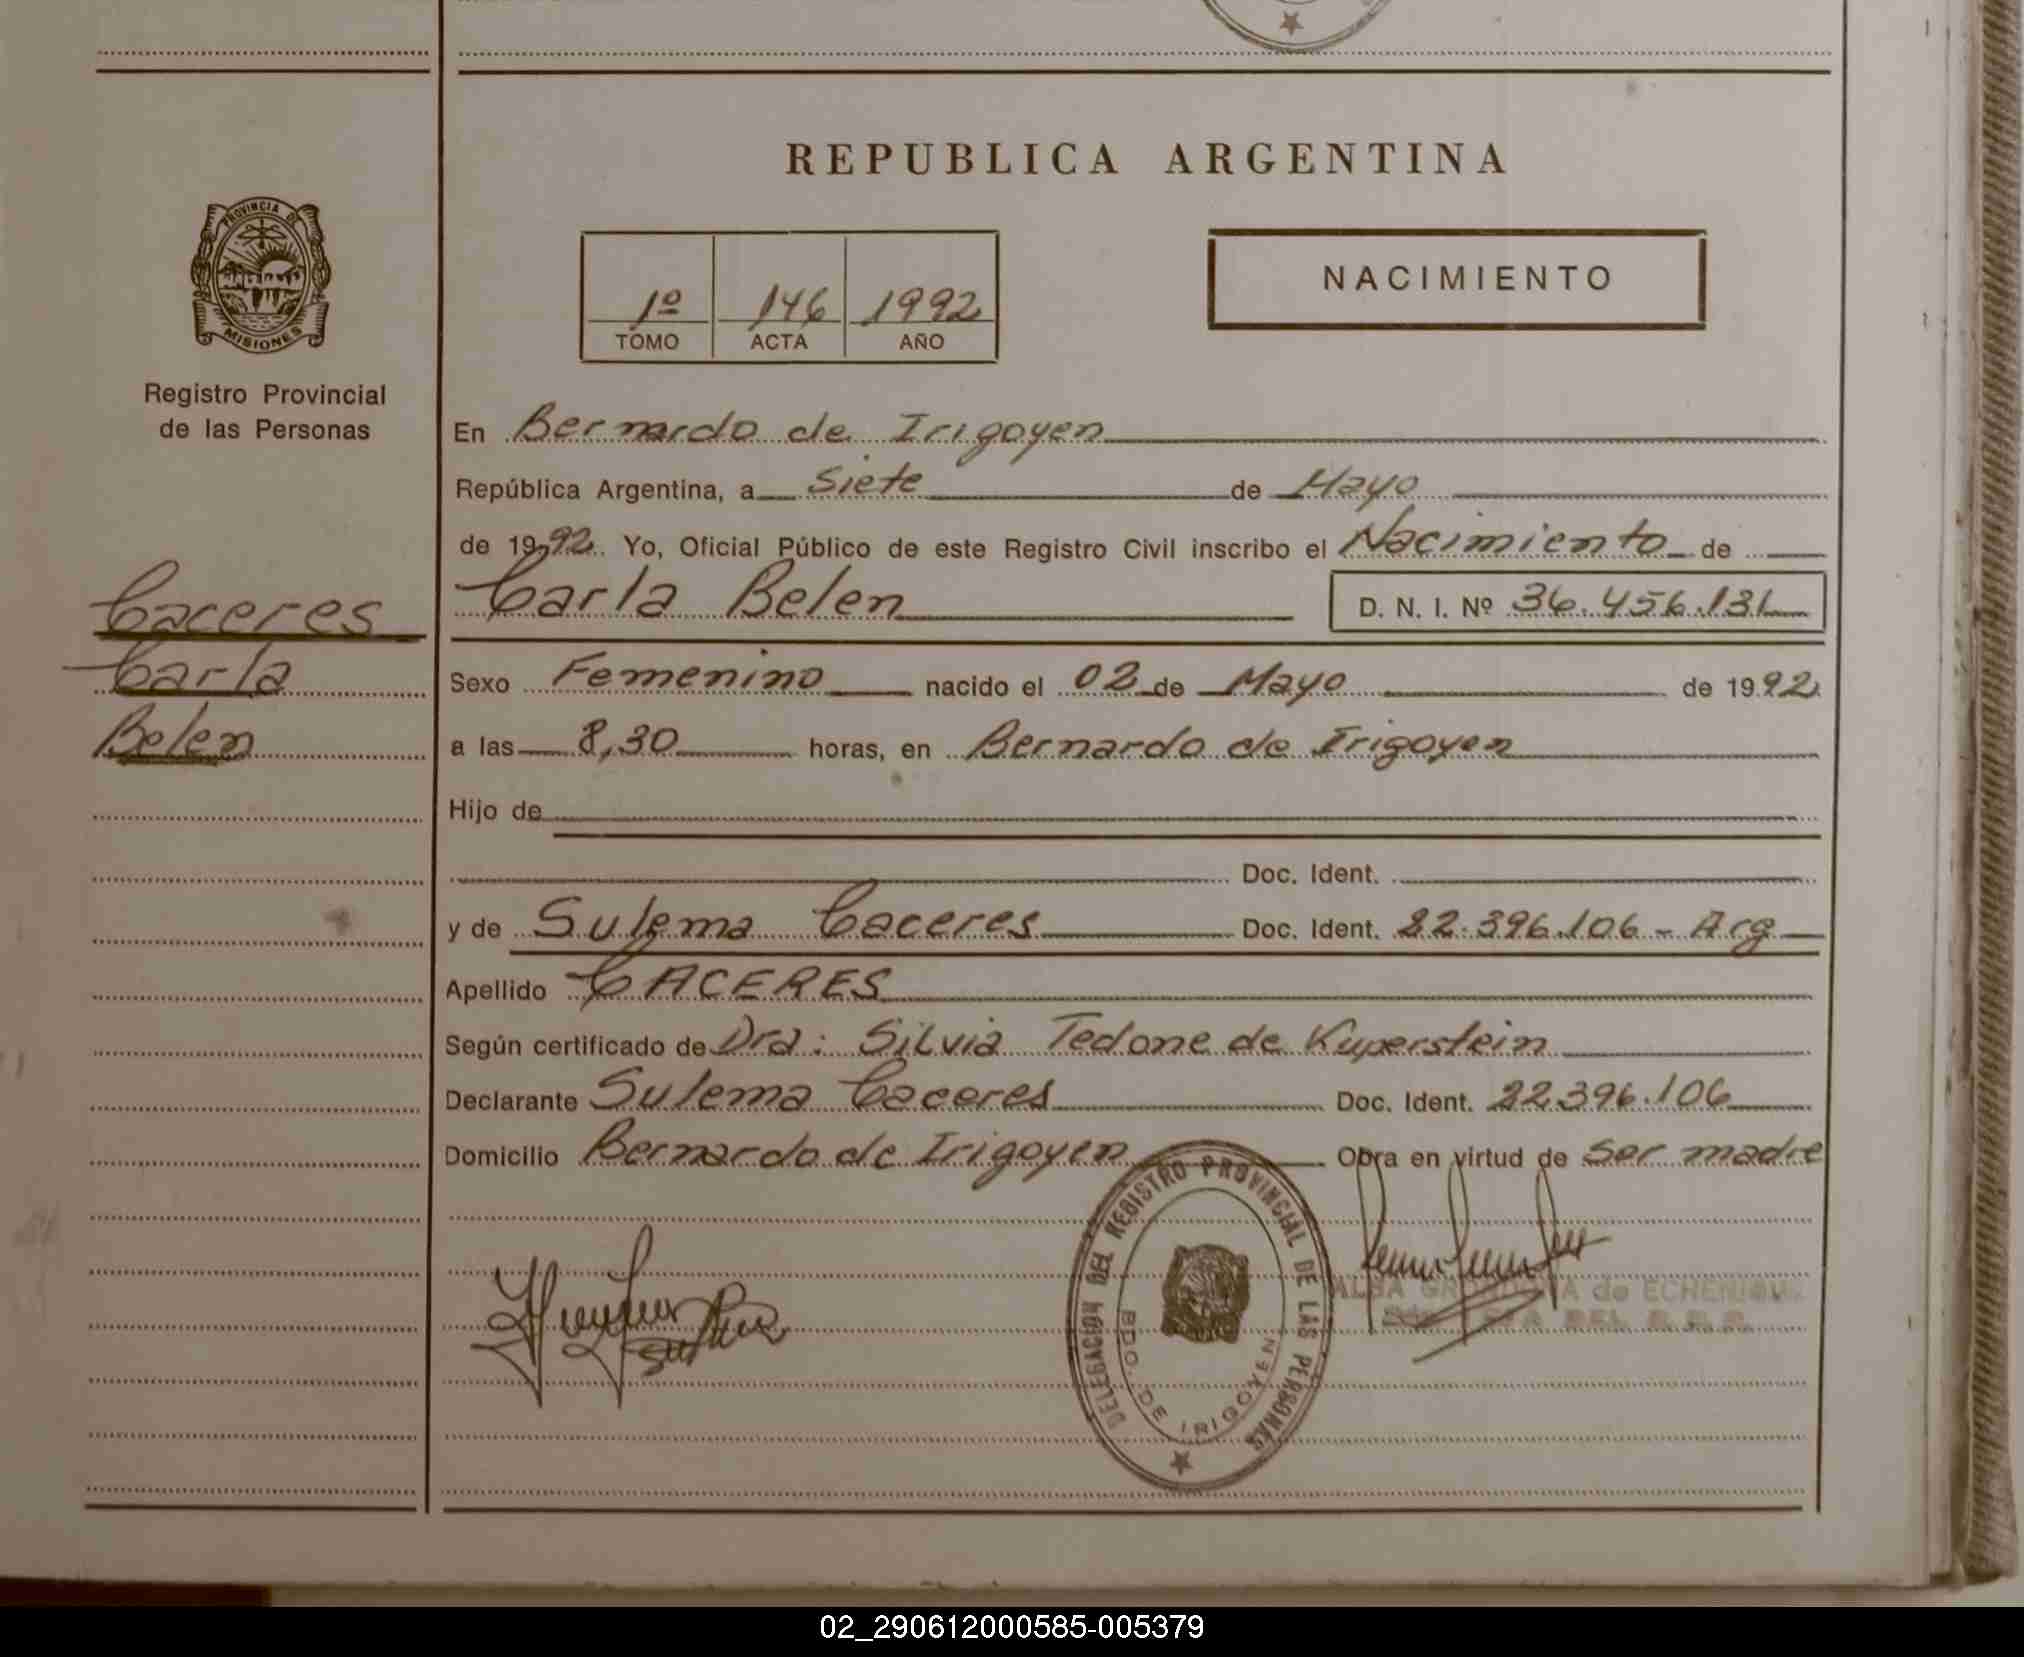 REPUBLICA ARGENTINA
PROVINCIA DE
MISIONES
Registro Provincial
de las Personas
1º 146 1992
TOMO ACTA AÑO
NACIMIENTO
Caceres
Carla
Belen
En Bernardo de Irigoyen
República Argentina, a Siete de Mayo
de 1992. Yo, Oficial Público de este Registro Civil inscribo el Nacimiento de
Carla Belen D. N. I. Nº 36.456.131
Sexo Femenino nacido el 02 de Mayo de 1992
a las 8,30 horas, en Bernardo de Irigoyen
Hijo de
Doc. Ident.
y de Sulema Caceres Doc. Ident. 22.396.106 - Arg
Apellido CACERES
Según certificado de Dra: Silvia Tedone de Kuperstein
Declarante Sulema Caceres Doc. Ident. 22.396.106
Domicilio Bernardo de Irigoyen Obra en virtud de ser madre
DELEGACION DEL REGISTRO PROVINCIAL DE LAS PERSONAS
BDO. DE IRIGOYEN
ALBA de
DEL
02_290612000585-005379